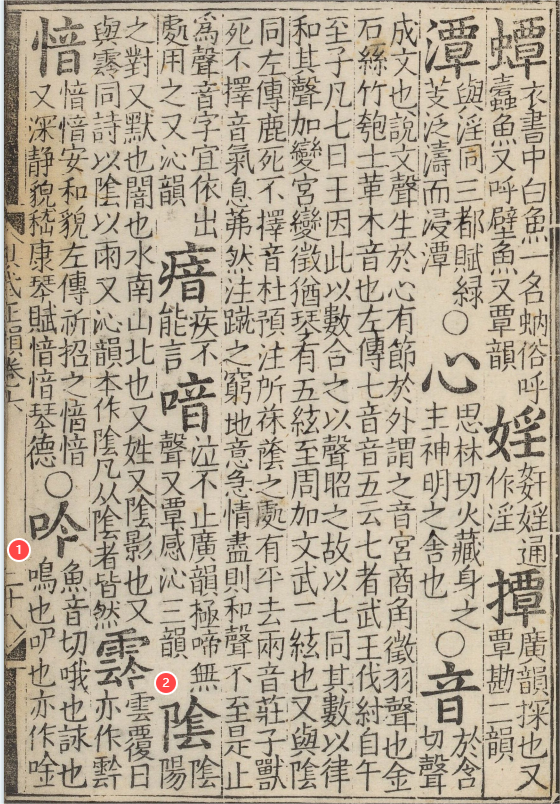 蟫
衣書中白魚一名蛃俗呼
蠹魚又呼壁魚又覃韻
婬
姧婬通
作淫
撢
廣韻探也又
覃勘二韻
潭
與淫同三都賦緑
芰泛濤而浸潭
○
心
思林切火藏身之
主神明之舍也
○
音
於含
切聲
成文也說文聲生於心有節於外謂之音宮商角徵羽聲也金
石絲竹匏土革木音也左傳七音音五云七者武王伐紂自午
至子凡七日王因此以數合之以聲昭之故以七同其數以律
和其聲加變宮變徵猶琴有五絃至周加文武二絃也又與陰
同左傳鹿死不擇音杜預注所茠蔭之處有平去兩音莊子獸
死不擇音氣息茀然注蹴之窮地意急情盡則和聲不至是止
爲聲音字宜依出
處用之又沁韻
瘖
疾不
能言
喑
泣不止廣韻極啼無
聲又覃感沁三韻
陰
陰
陽
之對又默也闇也水南山北也又姓又陰影也又
與霒同詩以陰以雨又沁韻本作陰凡从陰者皆然
霠
雲覆日
亦作霒
愔
愔愔安和貌左傳祈招之愔愔
又深静貌嵇康琴賦愔愔琴德
○
吟
魚音切哦也詠也
鳴也呻也亦作唫
1
2